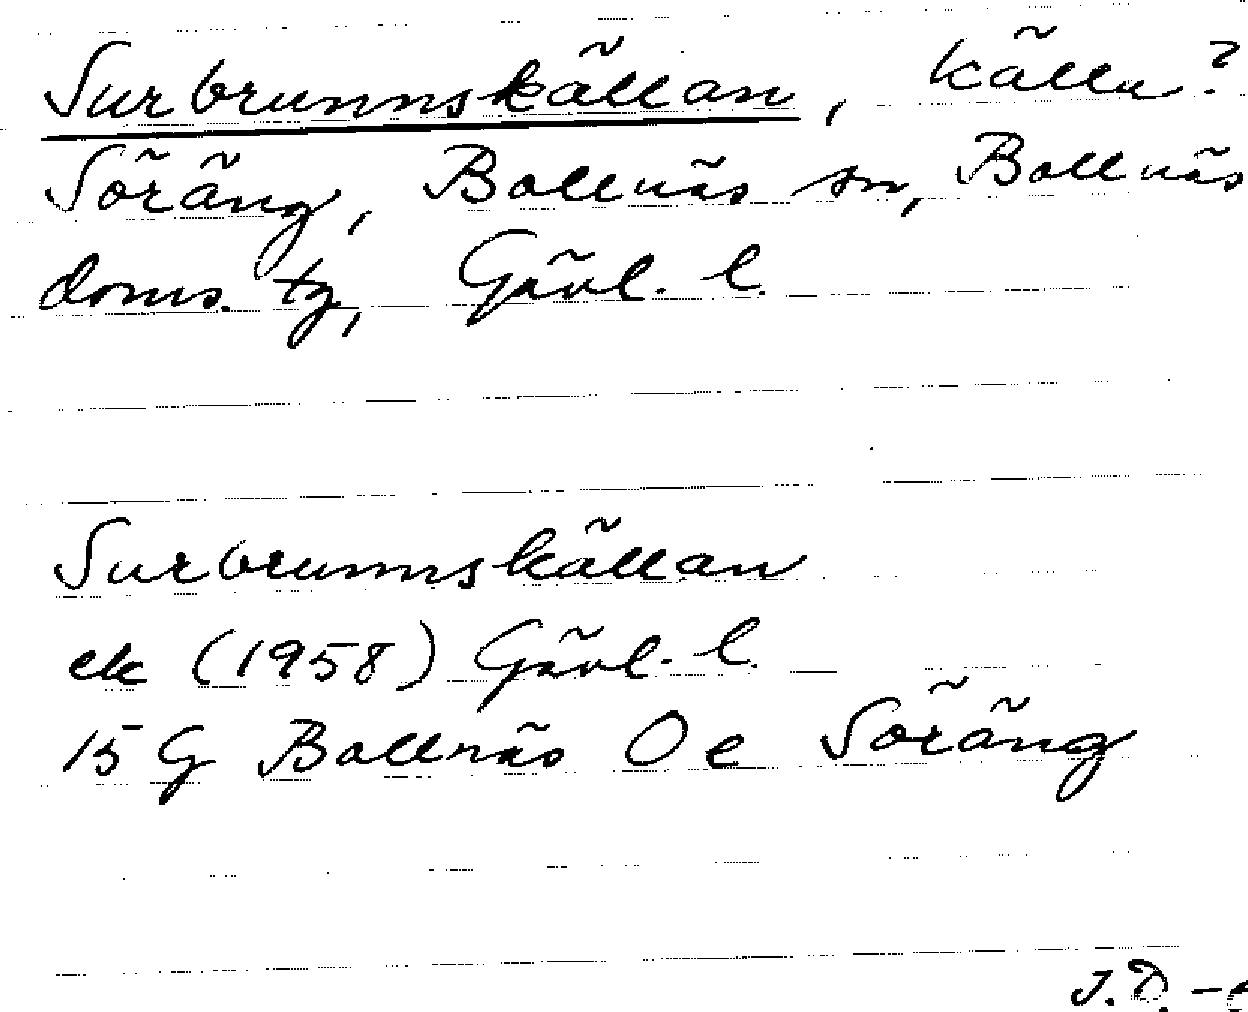 Surbrunnskällan, källa?
Söräng, Bollnäs sn, Bollnäs
doms. tg, Gävl. l.
Surbrunnskällan
ek (1958) Gävl. l.
15 G Bollnäs 0 e Söräng
J.D.